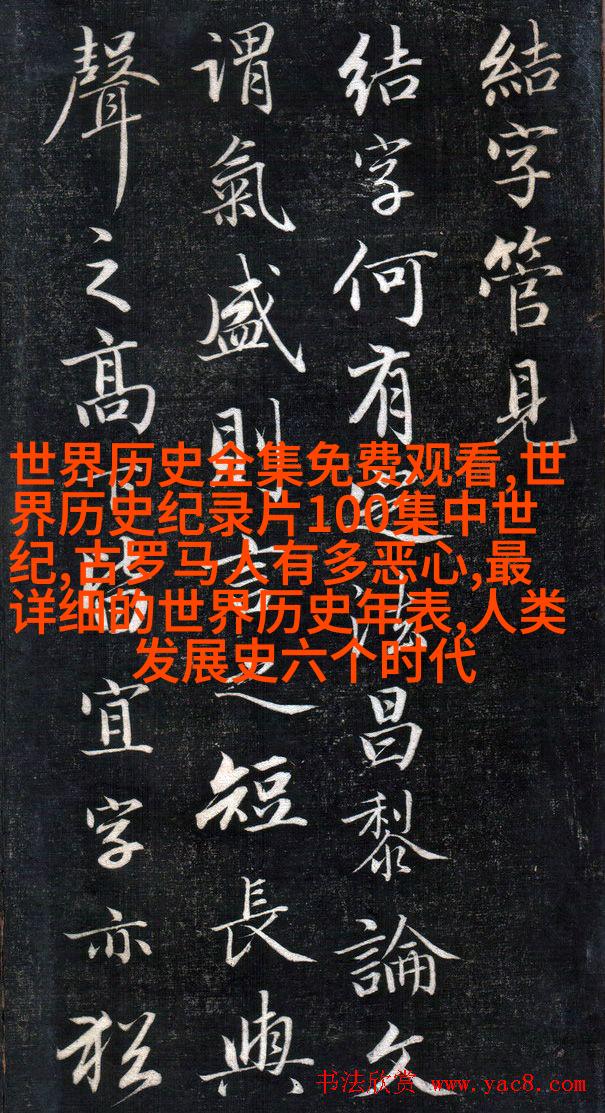 結字管見
結字何有定法昌黎論文
謂氣盛則言之短長與
聲之高下皆宜字亦猶
世界历史全集免费观看,世
界历史纪录片100集中世
纪,古罗马人有多恶心,最
详细的世界历史年表,人类
发展史六个时代
书法欣赏 www.yac8.com